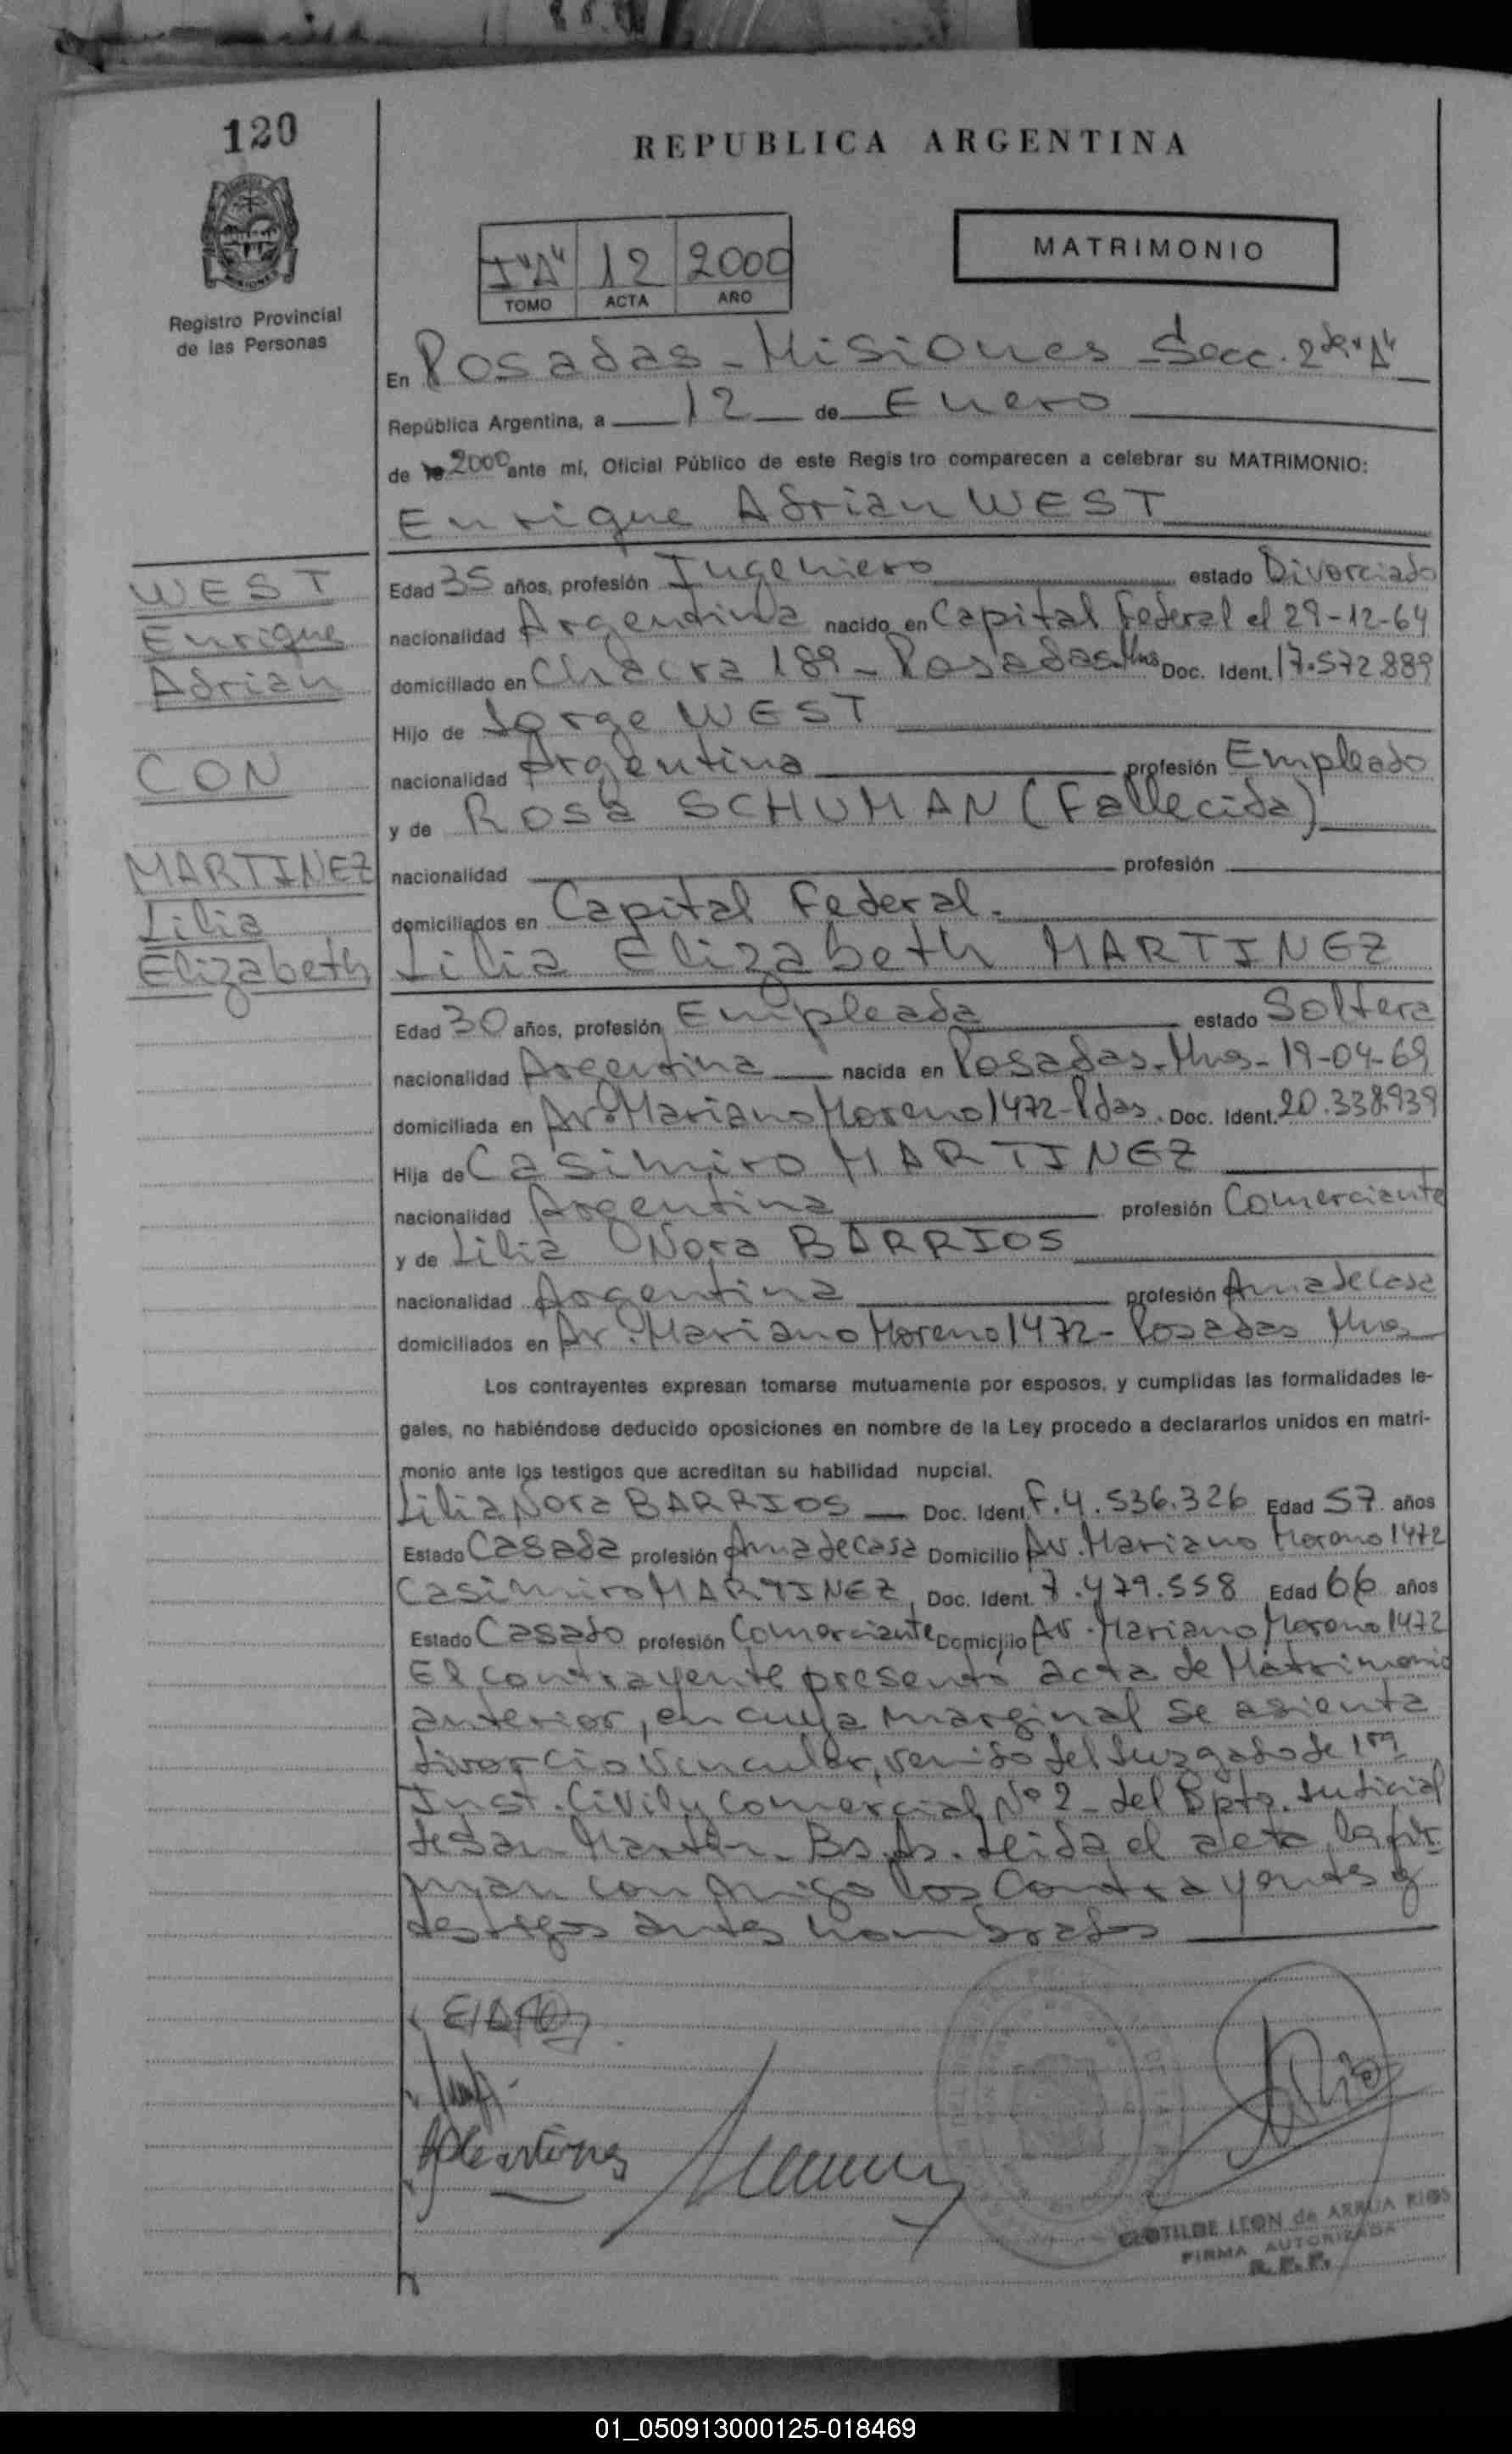 120
REPUBLICA ARGENTINA
MATRIMONIO
I "A" 12 2000
TOMO ACTA AÑO
Registro Provincial
de las Personas
En Posadas - Misiones Secc. 2da "A"
República Argentina, a 12 de Enero
de 2000 ante mí, Oficial Público de este Regis tro comparecen a celebrar su MATRIMONIO:
Enrique Adrian WEST
WEST
Enrique
Adrian
CON
MARTINEZ
Lilia
Elizabeth
Edad 35 años, profesión Ingeniero estado Divorciado
nacionalidad Argentina nacido en Capital Federal el 29-12-64
domiciliado en Chacra 189 - Posadas. Mns Doc. Ident. 17.572.889
Hijo de Jorge WEST
nacionalidad Argentina profesión Empleado
y de Rosa SCHUMAN (Fallecida)
nacionalidad profesión
domiciliados en Capital Federal.
Lilia Elizabeth MARTINEZ
Edad 30 años, profesión Empleada estado Soltera
nacionalidad Argentina nacida en Posadas - Mns - 19-04-69
domiciliada en Av. Mariano Moreno 1472 - Pdas. Doc. Ident. 20.338.939
Hija de Casimiro MARTINEZ
nacionalidad Argentina profesión Comerciante
y de Lilia Nora BARRIOS
nacionalidad Argentina profesión Ama de Casa
domiciliados en Av. Mariano Moreno 1472 - Posadas Mns
Los contrayentes expresan tomarse mutuamente por esposos, y cumplidas las formalidades le-
gales, no habiéndose deducido oposiciones en nombre de la Ley procedo a declararlos unidos en matri-
monio ante los testigos que acreditan su habilidad nupcial.
Lilia Nora BARRIOS Doc. Ident. F. 4.536.326 Edad 57 años
Estado Casada profesión Ama de Casa Domicilio Av. Mariano Moreno 1472
Casimiro MARTINEZ, Doc. Ident. 7.479.558 Edad 66 años
Estado Casado profesión Comerciante Domicilio Av. Mariano Moreno 1472
El contrayente presentó acta de Matrimonio
anterior, en cuya marginal se asienta
divorcio vincular, venido del Juzgado de 1ra
Inst. Civil y Comercial Nº 2 - del Dpto. Judicial
de San Martín - Bs. As. Leida el acta, la fir
man con migo los Contrayentes y
testigos antes nombrados
CLOTILDE LEON de ARRUA RIOS
FIRMA AUTORIZADA
R. P. P.
01_050913000125-018469